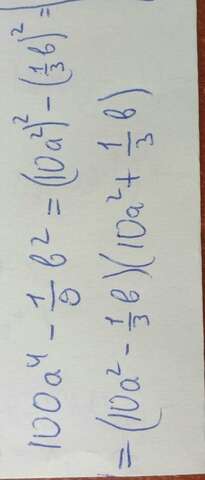 100a⁴ - 1/9 b² = (10a²)² - (1/3 b)² =
= (10a² - 1/3 b)(10a² + 1/3 b)